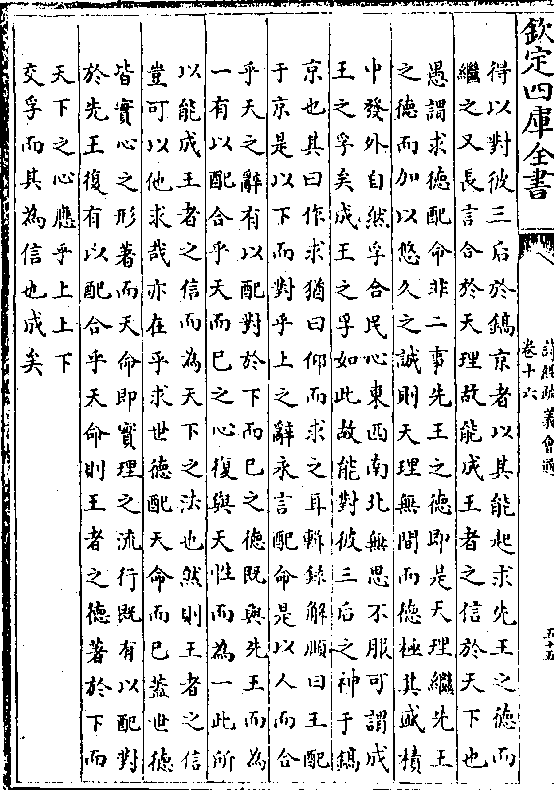 欽定四庫全書
詩經疏義會通
卷十六
五十五
得以對彼三后於鎬京者以其能起求先王之德而
繼之又長言合於天理故能成王者之信於天下也
愚謂求德配命非二事先王之德即是天理繼先王
之德而加以悠久之誠則天理無間而德極其盛積
中發外自然孚合民心東西南北無思不服可謂成
王之孚矣成王之孚如此故能對彼三后之神于鎬
京也其曰作求猶曰仰而求之耳輯錄解頤曰王配
于京是以下而對乎上之辭永言配命是以人而合
乎天之辭有以配對於下而已之德既與先王而為
一有以配合乎天而已之心復與天性而為一此所
以能成王者之信而為天下之法也然則王者之信
豈可以他求哉亦在乎求世德配天命而已蓋世德
皆實心之形著而天命即實理之流行既有以配對
於先王復有以配合乎天命則王者之德著於下而
天下之心應乎上上下
交孚而其為信也成矣